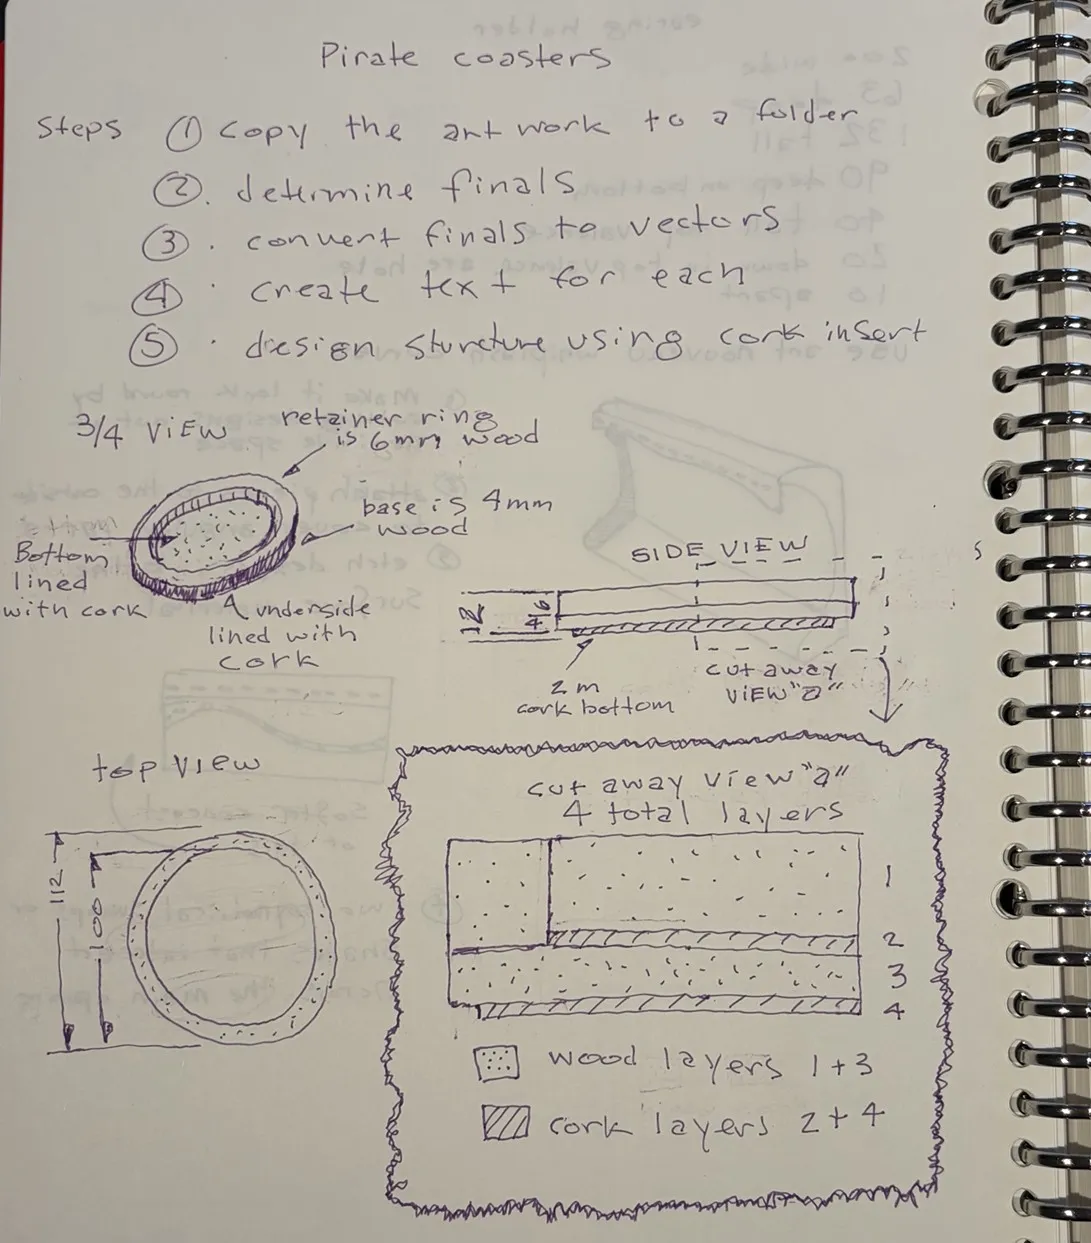 Pirate coasters
Steps ① copy the artwork to a folder
②. determine finals
③ . convert finals to vectors
④ . create text for each
⑤ . design sturcture using cork insert
3/4 VIEW
retainer ring
is 6mm wood
base is 4mm
wood
Bottom
lined
with cork
underside
lined with
cork
SIDE VIEW
12
4 6
2 m
cork bottom
cut away
VIEW "a"
top VIEW
112
100
cut away view "a"
4 total layers
1
2
3
4
wood layers 1+3
cork layers 2+4